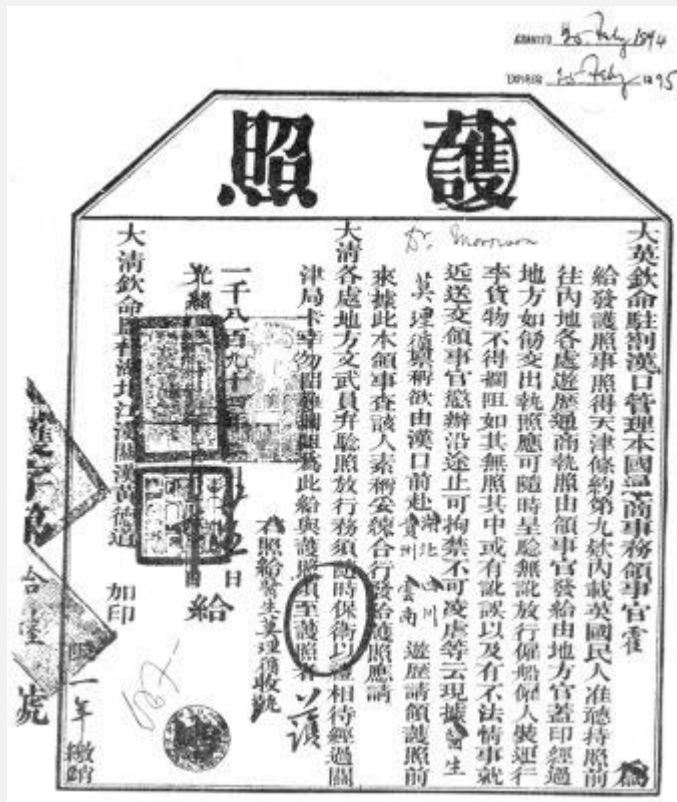 GRANTED 25 Feby 1894
EXPIRES 25 Feby 1895
護照
大英欽命駐劄漢口管理本國通商事務領事官霍 為
給發護照事照得天津條約第九欵內載英國民人准聽持照前
往內地各處遊歷通商執照由領事官發給由地方官蓋印經過
地方如飭交出執照應可隨時呈驗無訛放行僱船僱人裝運行
李貨物不得攔阻如其無照其中或有訛誤以及有不法情事就
近送交領事官懲辦沿途止可拘禁不可凌虐等云現據醫生
Dr. Morrison
莫理循稟稱欲由漢口前赴湖北四川貴州雲南遊歷請領護照前
來據此本領事查該人素稱妥練合行發給護照應請
大清各處地方文武員弁驗照放行務須隨時保衛以禮相待經過關
津局卡幸勿留難攔阻為此給與護照須至護照者
護
右照給醫生莫理循收執
一千八百九十四年 日 給
光緒
大清欽命 湖北江漢關漢黃德道 加印
限一年繳銷